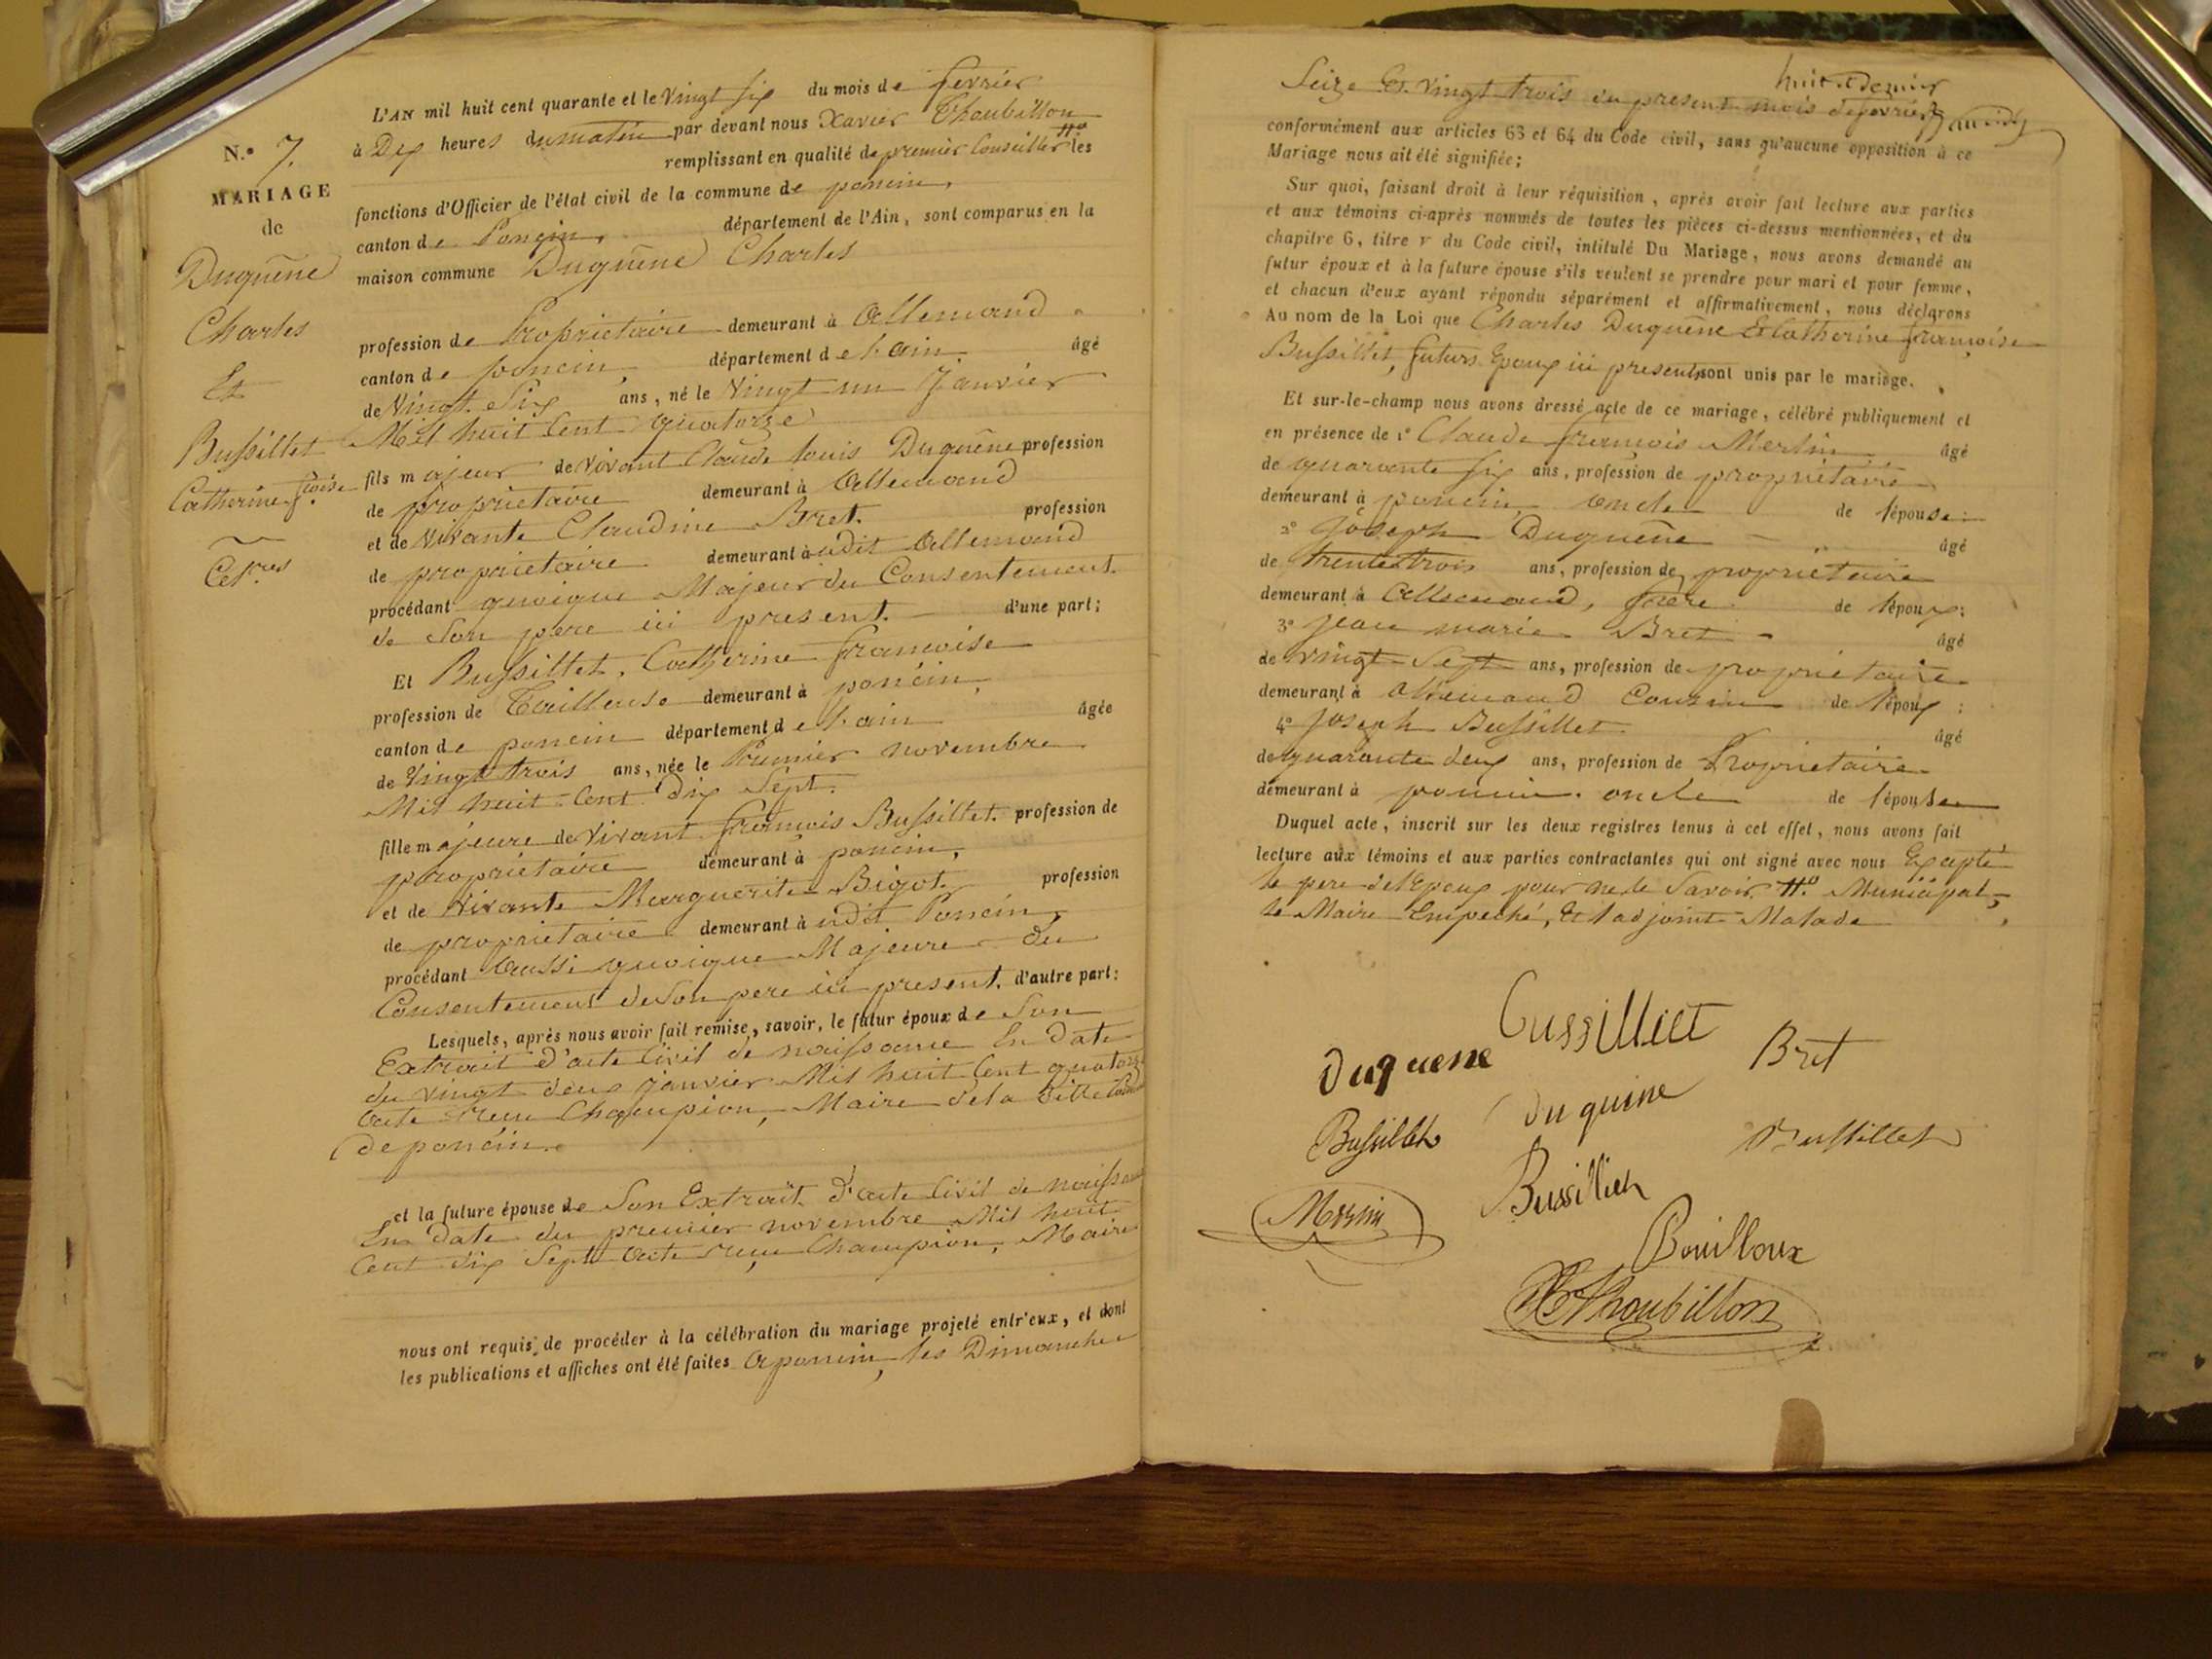 N.º 7.
MARIAGE
de
Duquêne
Charles
Et
Bussillet
Catherine fçoise
L'AN mil huit cent quarante et le Vingt six du mois de fevrier
à Dix heures du matin par devant nous Xavier Thoubillon
remplissant en qualité de premier Conseiller les
fonctions d'Officier de l'état civil de la commune de poncin,
canton de Poncin, département de l'Ain, sont comparus en la
maison commune Duquêne Charles
profession de Proprietaire demeurant à Allemand
canton de poncin, département de l'ain âgé
de Vingt Six ans, né le Vingt un Janvier
Mil huit Cent quatorze
fils majeur de vivant Claude Louis Duquêne profession
de proprietaire demeurant à Allemand
et de vivante Claudine Bret. profession
de proprietaire demeurant à udit Allemand
procédant quoique Majeur du Consentement
de Son pere ici present. d'une part;
Et Bussillet, Catherine françoise
profession de Tailleuse demeurant à poncin,
canton de poncin département de l'ain âgée
de Vingt trois ans, née le Premier novembre
Mil huit Cent dix Sept.
fille majeure de vivant françois Bussillet. profession de
proprietaire demeurant à poncin,
et de vivante Marguerite Bigot. profession
de proprietaire demeurant à udit Poncin,
procédant aussi quoique Majeure du
Consentement de Son pere ici present. d'autre part:
Lesquels, après nous avoir fait remise, savoir, le futur époux de Son
Extrait d'acte Civil de naissance En Date
du vingt deux janvier Mil huit Cent quatorze
acte reçu Champion, Maire de la ville
de poncin.
et la future épouse de Son Extrait d'acte Civil de naissance
En Date du premier novembre Mil huit
Cent dix Sept acte reçu Champion, Maire
nous ont requis de procéder à la célébration du mariage projeté entr'eux, et dont
les publications et affiches ont été faites a poncin, les Dimanche
huit dernier
Seize Et Vingt trois du present mois de fevrier, a midy
conformément aux articles 63 et 64 du Code civil, sans qu'aucune opposition à ce
Mariage nous ait été signifiée;
Sur quoi, faisant droit à leur réquisition, après avoir fait lecture aux parties
et aux témoins ci-après nommés de toutes les pièces ci-dessus mentionnées, et du
chapitre 6, titre v du Code civil, intitulé Du Mariage, nous avons demandé au
futur époux et à la future épouse s'ils veulent se prendre pour mari et pour femme,
et chacun d'eux ayant répondu séparément et affirmativement, nous déclarons
Au nom de la Loi que Charles Duquêne Et Catherine françoise
Bussillet, futurs Epoux ici presents, sont unis par le mariage.
Et sur-le-champ nous avons dressé acte de ce mariage, célébré publiquement et
en présence de 1º Claude françois Merlin âgé
de quarante six ans, profession de proprietaire
demeurant à poncin, oncle de l'épouse
2º Joseph Duquêne âgé
de trente trois ans, profession de proprietaire
demeurant à Allemand, frere de l'époux;
3º jean marie Bret âgé
de vingt Sept ans, profession de proprietaire
demeurant à Allemand Cousin de l'époux;
4º Joseph Bussillet âgé
de quarante deux ans, profession de Proprietaire
demeurant à poncin. oncle de l'épouse
Duquel acte, inscrit sur les deux registres tenus à cet effet, nous avons fait
lecture aux témoins et aux parties contractantes qui ont signé avec nous Excepté
le pere de l'Epoux pour ne le Savoir. Municipal,
le Maire Empeché, Et l'adjoint Malade
Cussilliet
Duquene
Bret
Duquine
Bussillet
Bussillet
Bussilliet
Bouilloux
Thoubillon